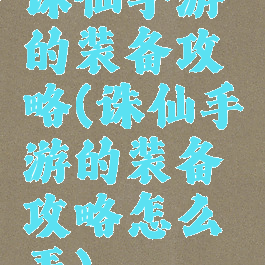 诛仙手游
的装备攻
略(诛仙手
游的装备
攻略怎么
弄)